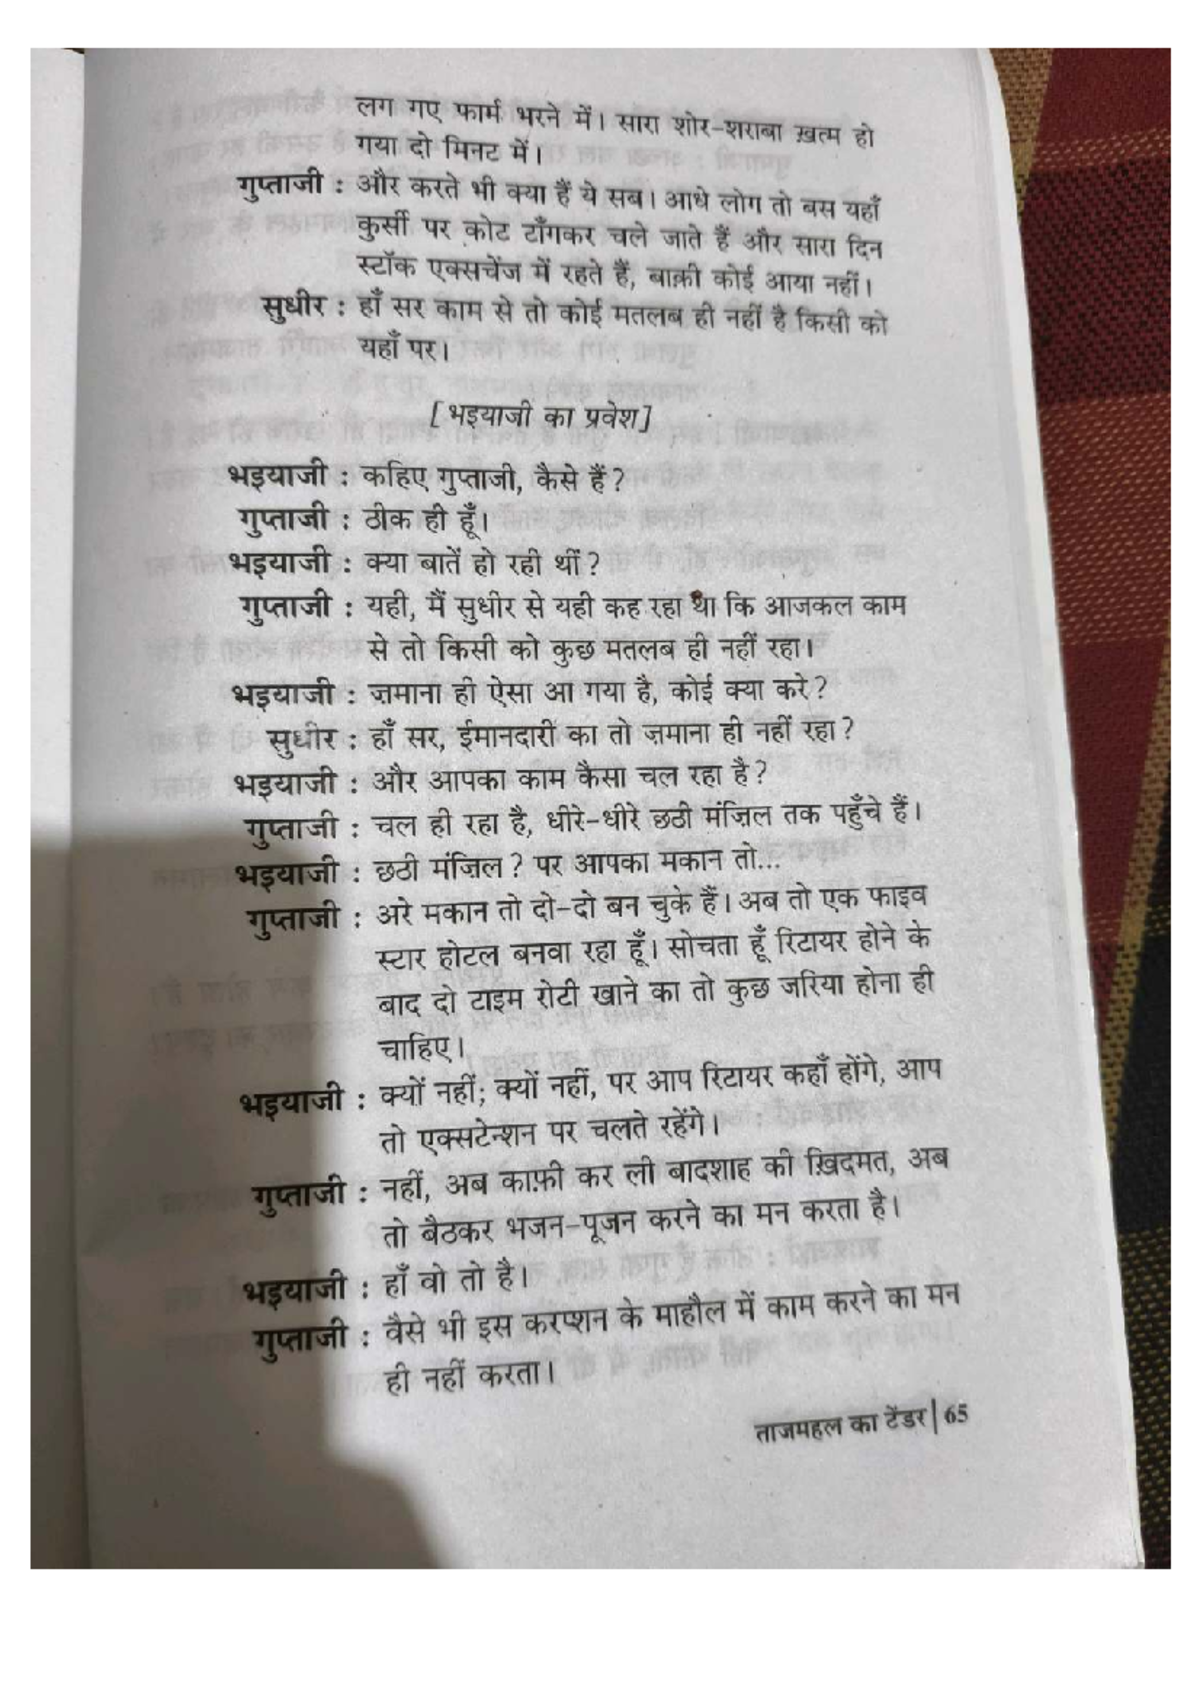 लग गए फार्म भरने में। सारा शोर-शराबा ख़त्म हो
गया दो मिनट में।
गुप्ताजी : और करते भी क्या हैं ये सब। आधे लोग तो बस यहाँ
कुर्सी पर कोट टाँगकर चले जाते हैं और सारा दिन
स्टॉक एक्सचेंज में रहते हैं, बाक़ी कोई आया नहीं।
सुधीर : हाँ सर काम से तो कोई मतलब ही नहीं है किसी को
यहाँ पर।
[भइयाजी का प्रवेश]
भइयाजी : कहिए गुप्ताजी, कैसे हैं?
गुप्ताजी : ठीक ही हूँ।
भइयाजी : क्या बातें हो रही थीं?
गुप्ताजी : यही, मैं सुधीर से यही कह रहा था कि आजकल काम
से तो किसी को कुछ मतलब ही नहीं रहा।
भइयाजी : ज़माना ही ऐसा आ गया है, कोई क्या करे?
सुधीर : हाँ सर, ईमानदारी का तो ज़माना ही नहीं रहा?
भइयाजी : और आपका काम कैसा चल रहा है?
गुप्ताजी : चल ही रहा है, धीरे-धीरे छठी मंज़िल तक पहुँचे हैं।
भइयाजी : छठी मंज़िल? पर आपका मकान तो...
गुप्ताजी : अरे मकान तो दो-दो बन चुके हैं। अब तो एक फाइव
स्टार होटल बनवा रहा हूँ। सोचता हूँ रिटायर होने के
बाद दो टाइम रोटी खाने का तो कुछ जरिया होना ही
चाहिए।
भइयाजी : क्यों नहीं; क्यों नहीं, पर आप रिटायर कहाँ होंगे, आप
तो एक्सटेन्शन पर चलते रहेंगे।
गुप्ताजी : नहीं, अब काफ़ी कर ली बादशाह की ख़िदमत, अब
तो बैठकर भजन-पूजन करने का मन करता है।
भइयाजी : हाँ वो तो है।
गुप्ताजी : वैसे भी इस करप्शन के माहौल में काम करने का मन
ही नहीं करता।
ताजमहल का टेंडर | 65